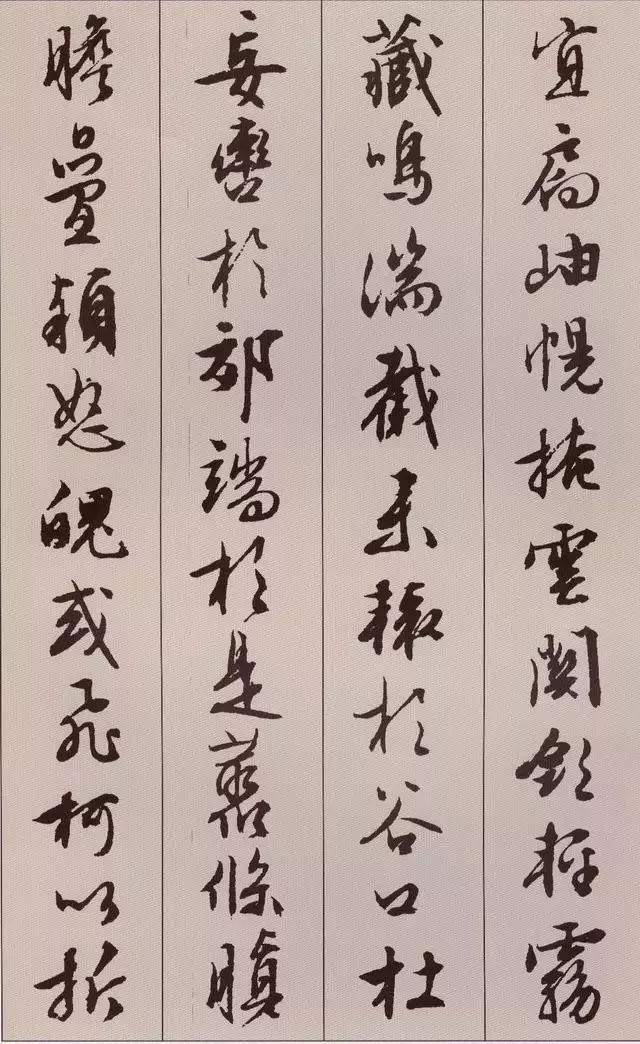 宜扃岫幌掩雲關斂輕霧
藏鳴湍截來轅於谷口杜
妄轡於郊端於是藂條瞋
膽疊穎怒魄或飛柯以折